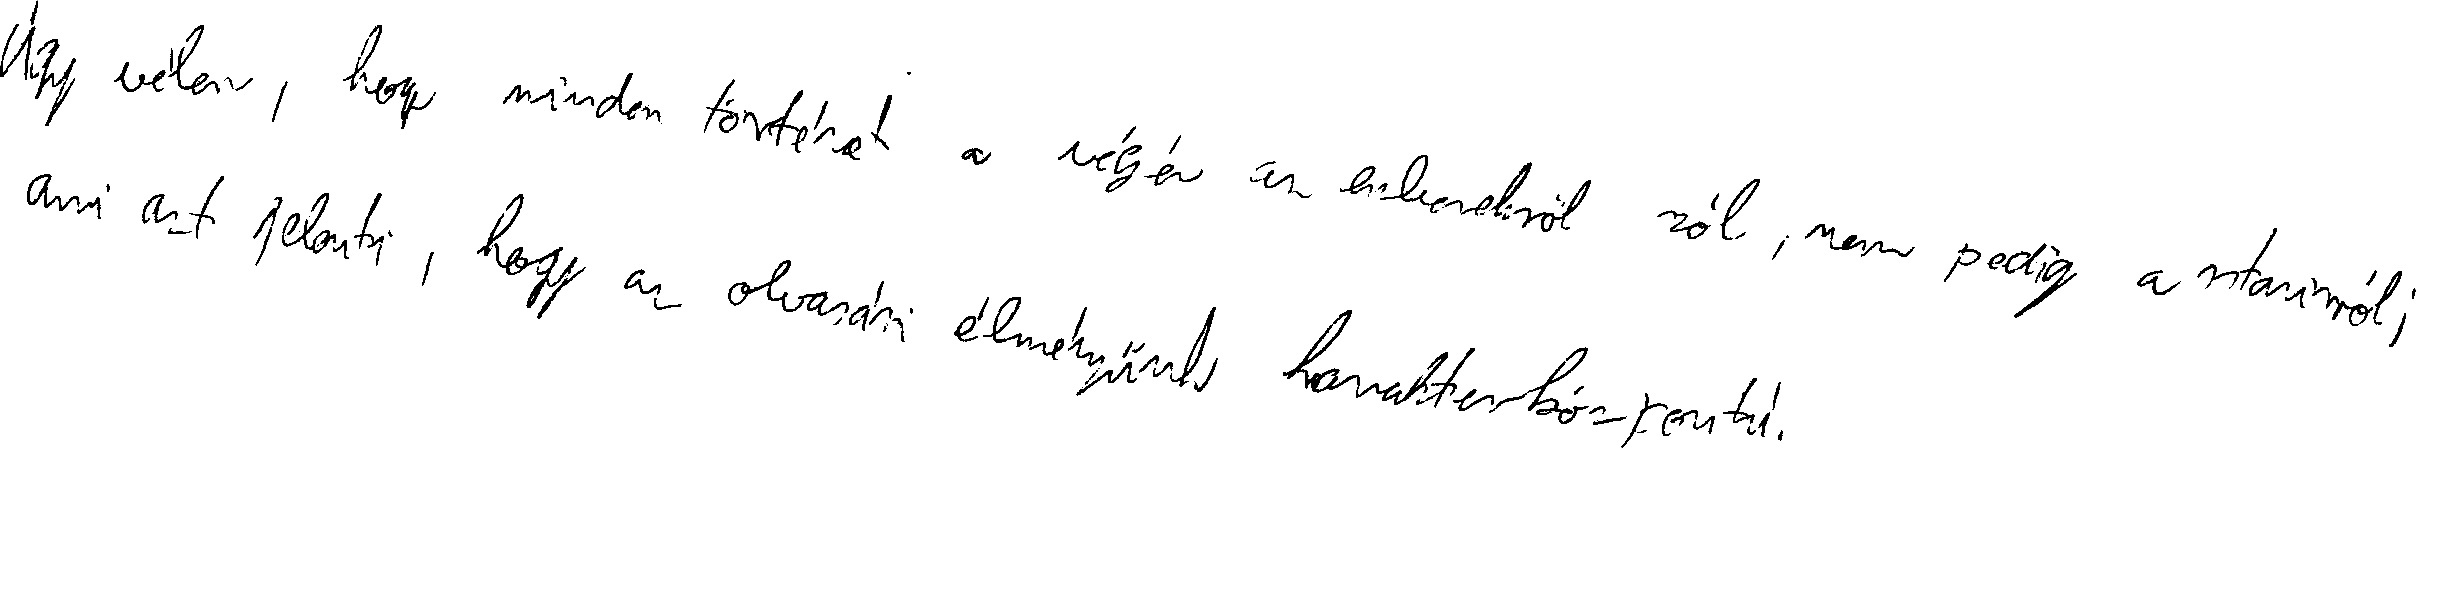 Úgy vélem, hogy minden történet a végén az emberekről szól, nem pedig a sztorikról;
ami azt jelenti, hogy az olvasási élményünk karakterközpontú.